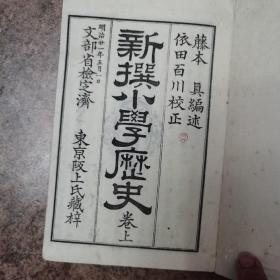 藤本真編述
依田百川校正
新撰小學歷史 卷上
明治廿一年五月一日
文部省檢定濟
東京阪上氏藏梓